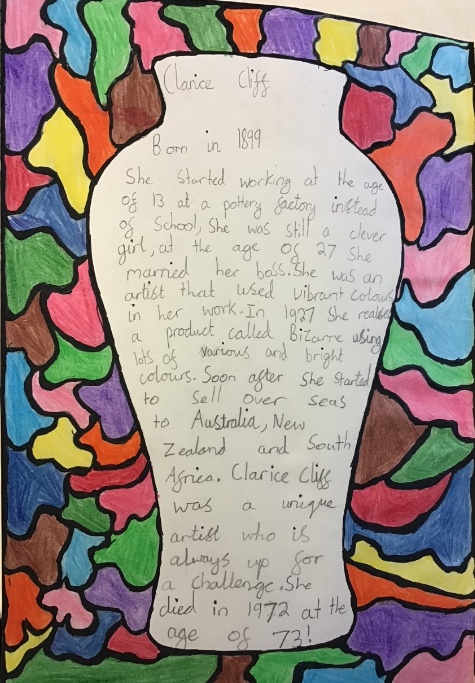 Clarice Cliff
Born in 1899
She started working at the age
of 13 at a pottery factory instead
of School, She was still a clever
girl, at the age of 27 She
married her boss. She was an
artist that used vibrant colours
in her work. In 1927 She realse
a product called Bizarre using
lots of various and bright
colours. Soon after She Started
to sell over seas
to Australia, New
Zealand and South
Africa. Clarice Cliff
was a unique
artist who is
always up for
a challenge. She
died in 1972 at the
age of 73!